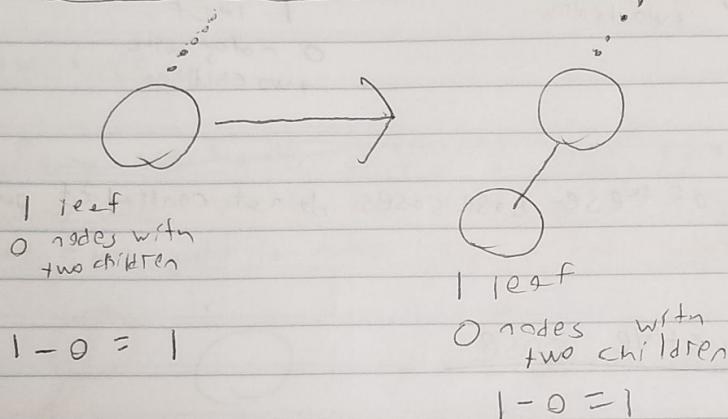 1 leaf
0 nodes with
two children
1 - 0 = 1
1 leaf
0 nodes with
two children
1 - 0 = 1